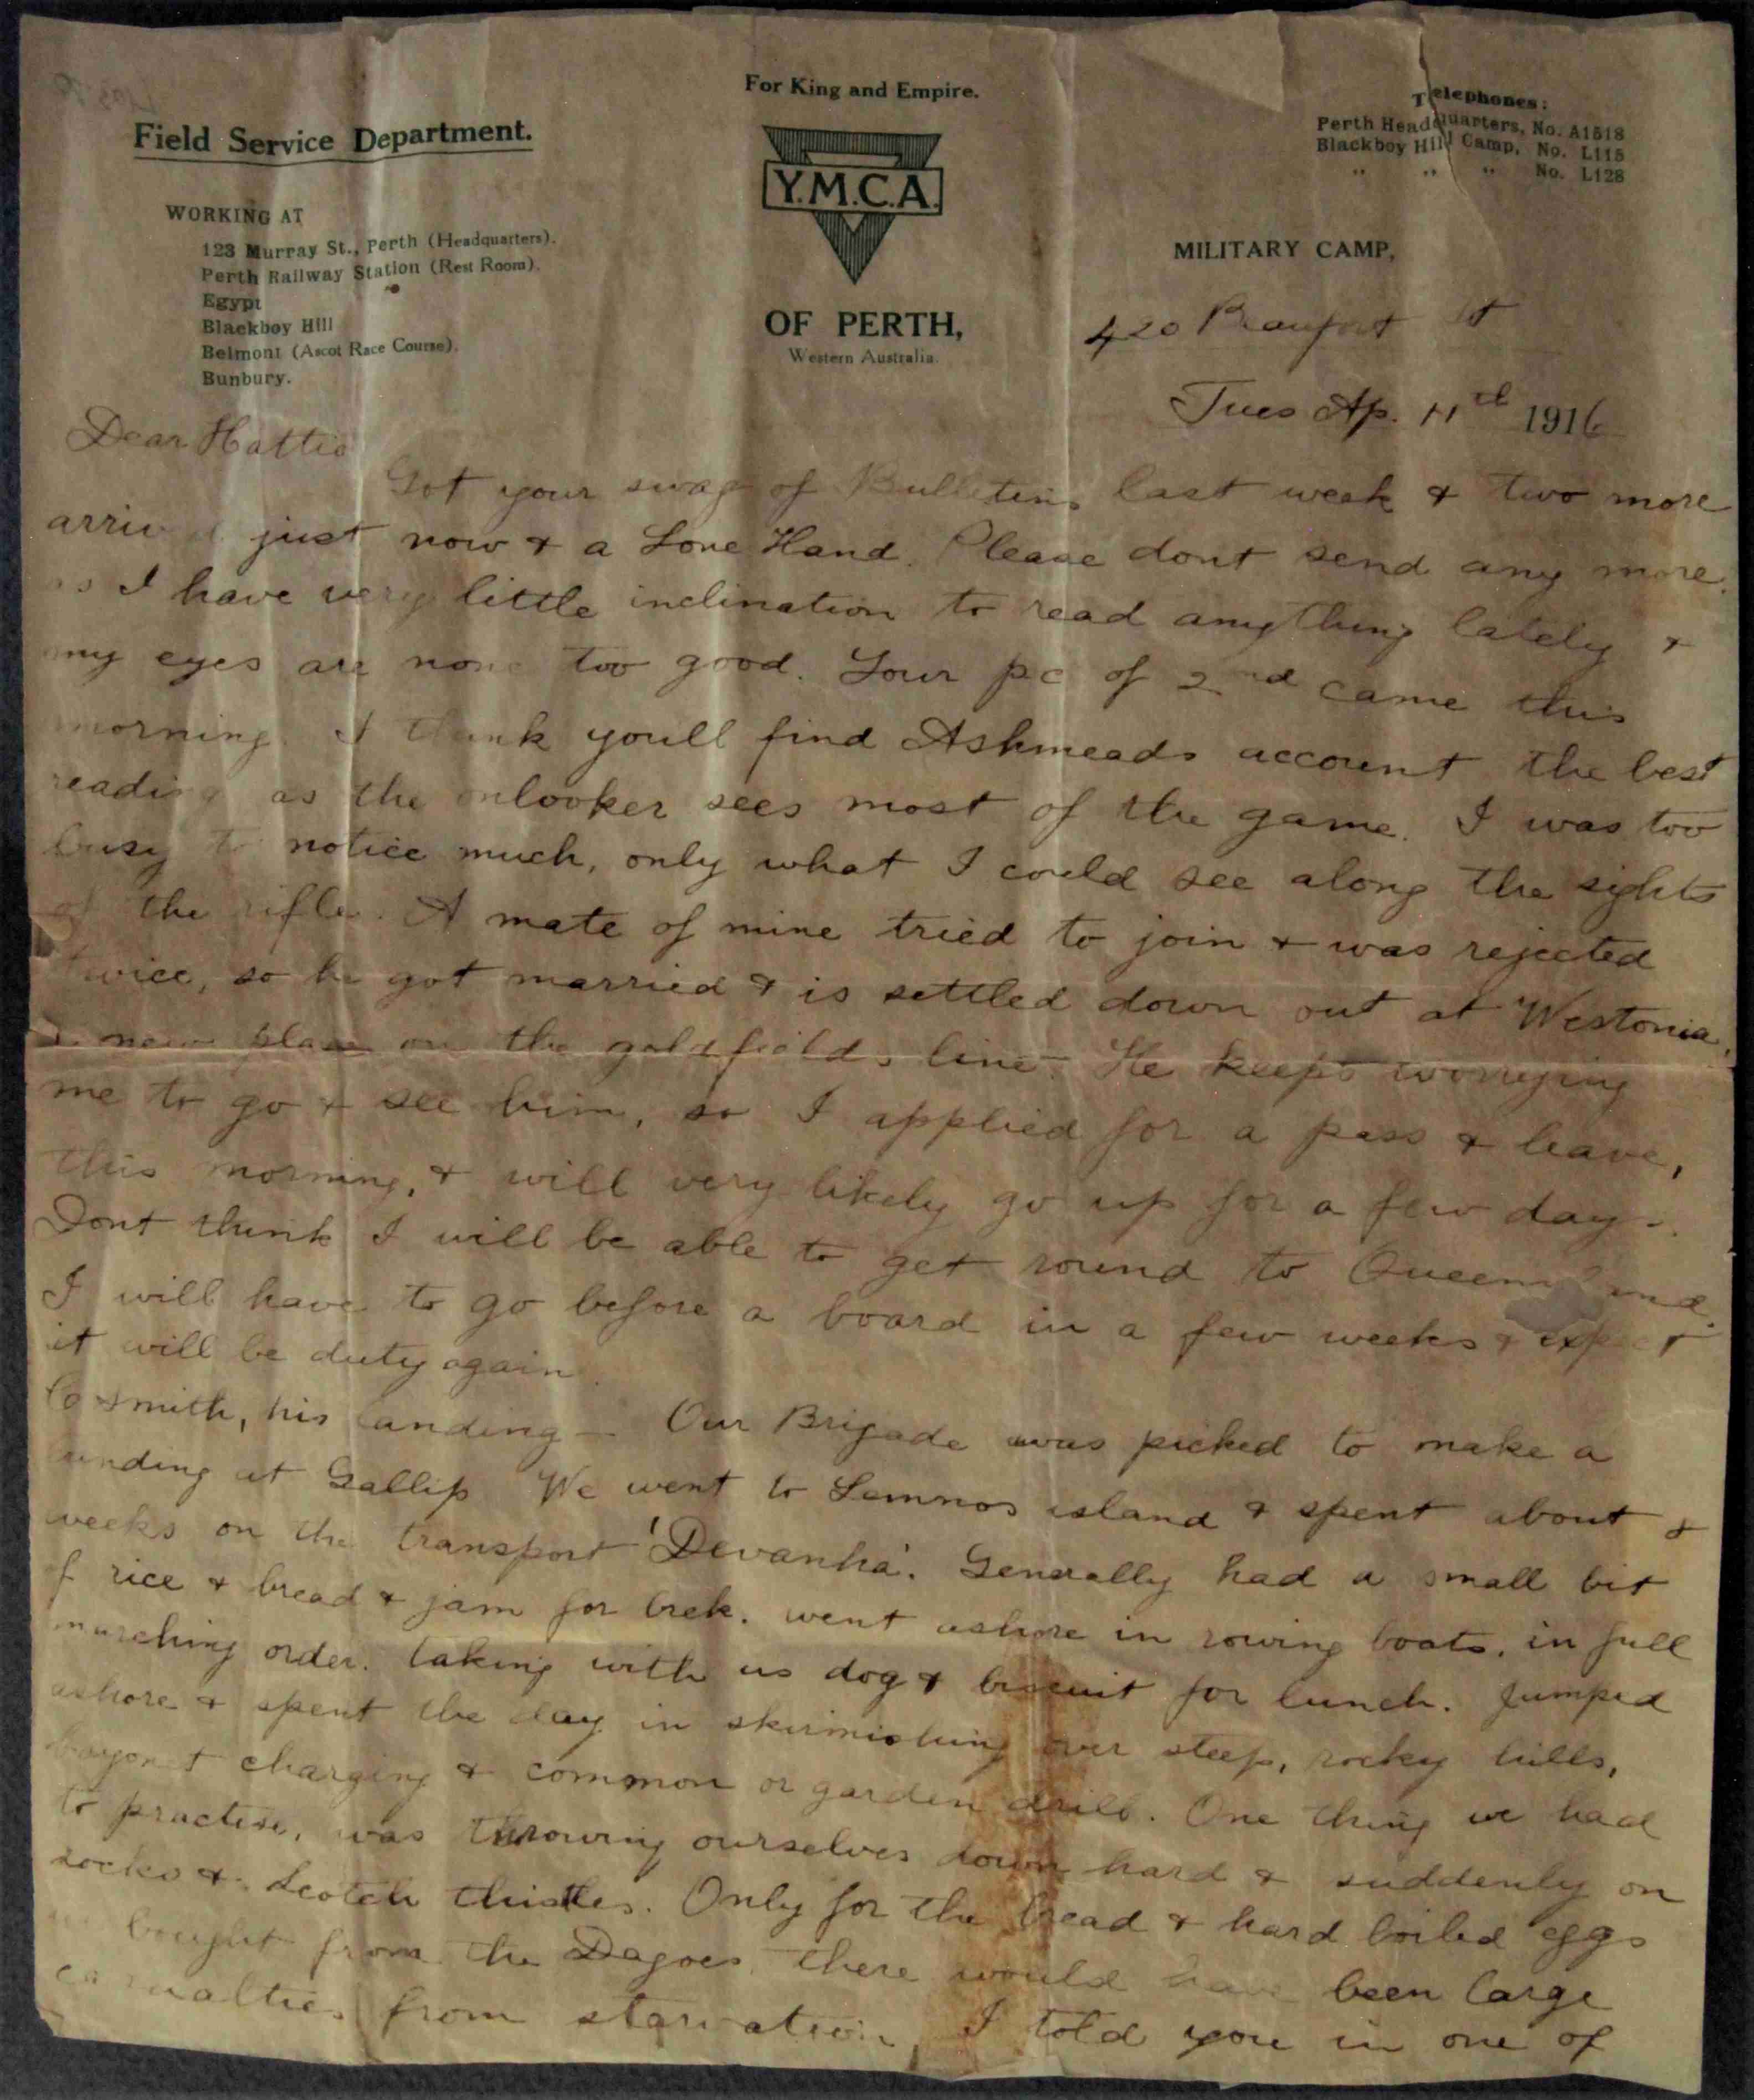 For King and Empire.
Field Service Department.
Telephones:
Perth Headquarters, No. A1518
Blackboy Hill Camp, No. L115
" " " No. L128
Y.M.C.A.
OF PERTH,
Western Australia.
WORKING AT
123 Murray St., Perth (Headquarters).
Perth Railway Station (Rest Room).
Egypt
Blackboy Hill
Belmont (Ascot Race Course).
Bunbury.
MILITARY CAMP,
420 Beaufort St
Tues Ap. 11th 1916
Dear Hattie
Got your swag of Bulletins last week & two more
arrived just now & a Lone Hand. Please dont send any more.
as I have very little inclination to read anything lately &
my eyes are none too good. Your pc of 2nd came this
morning. I think youll find Ashmeads account the best
reading as the onlooker sees most of the game. I was too
busy to notice much, only what I could see along the sights
of the rifle. A mate of mine tried to join & was rejected
twice, so he got married & is settled down out at Westonia,
a new place on the goldfields line. He keeps worrying
me to go & see him, so I applied for a pass & leave,
this morning, & will very likely go up for a few days.
Dont think I will be able to get round to Queensland.
I will have to go before a board in a few weeks & expect
it will be duty again.
Co Smith, his landing — Our Brigade was picked to make a
landing at Gallip We went to Lemnos island & spent about
weeks on the transport 'Devanha'. Generally had a small bit
of rice & bread & jam for brek. went ashore in rowing boats, in full
marching order. taking with us dog & biscuit for lunch. Jumped
ashore & spent the day in skirmishing over steep, rocky hills,
bayonet charging & common or garden drill. One thing we had
to practise, was throwing ourselves down hard & suddenly on
rocks & Scotch thistles. Only for the bread & hard boiled eggs
we bought from the Dagoes there would have been large
casualties from starvation, I told you in one of